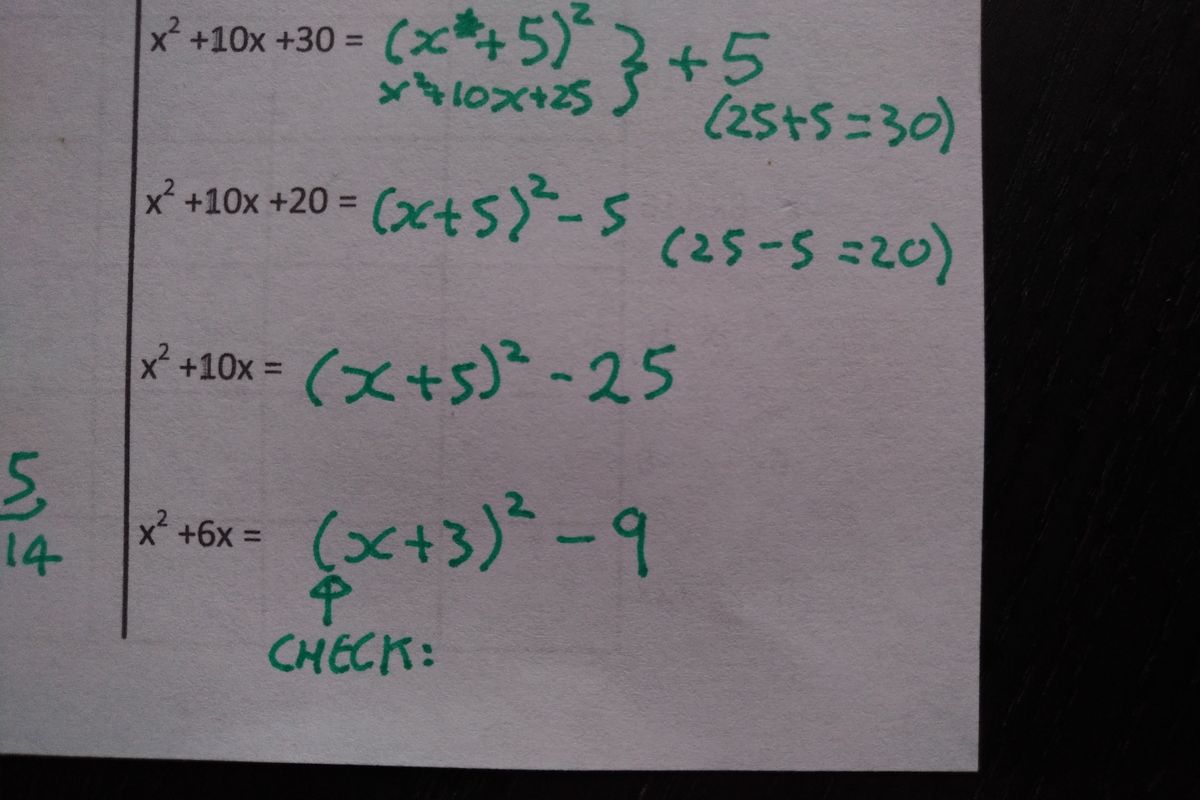 x² +10x +30 = (x + 5)² } + 5
x²+10x+25
(25+5=30)
x² +10x +20 = (x+5)² - 5
(25-5=20)
x² +10x = (x+5)² - 25
5
14
x² +6x = (x+3)² - 9
CHECK: